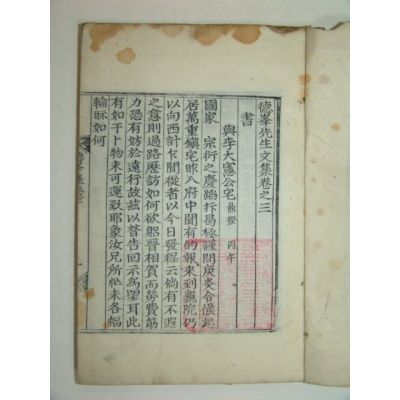 德峯先生文集卷之三
書
與李大憲公宅 丙午
國家 宗衍之慶蹈抃曷極謹問庚炎令候起
居萬重鎭宅昨入府中聞有的報來到院仍
以向西計乍聞從者以今日發程云倘有不遐
之意則過路歷訪如何欲躬晉相賀而勞費筋
力恐有妨於遠行故玆以替告回示爲望耳此
有如干卜物未可運致耶象汝兄所未各幅
輪眎如何